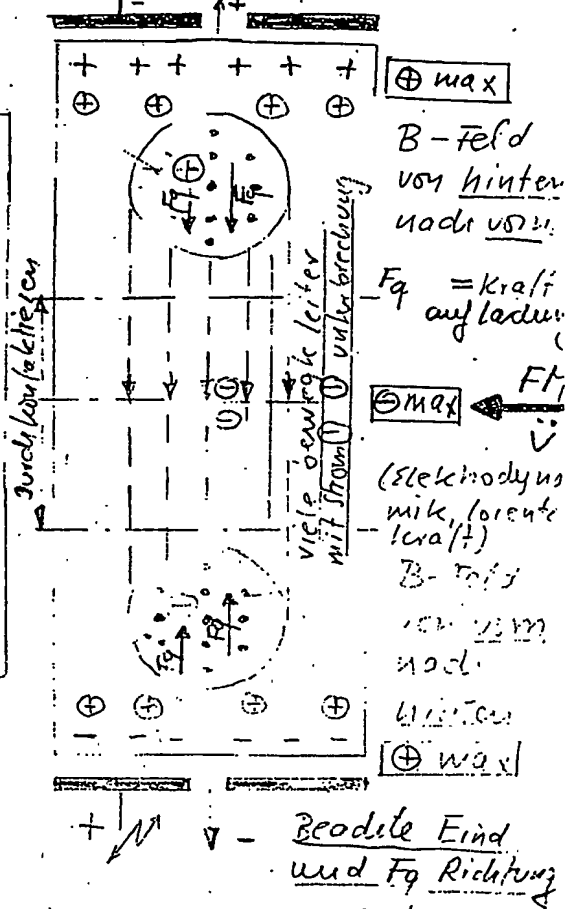 - +
+ + + + + +
⊕ ⊕ ⊕ ⊕
⊕ max
B-Feld
von hinten
nach vorn.
Fq Fq
Fq = Kraft
auf
viele bewegte Leiter
mit Strom ⊖ ⊖ unterbrechung
⊖ ⊖
⊖ max
v
(Elektrodyna
mik, Lorentz
kraft)
B-Feld
von vorn
nach
hinten
Fq Fq
⊕ ⊕ ⊕ ⊕
- - - - - -
⊕ max
+ -
Beachte Eind
und Fq Richtung